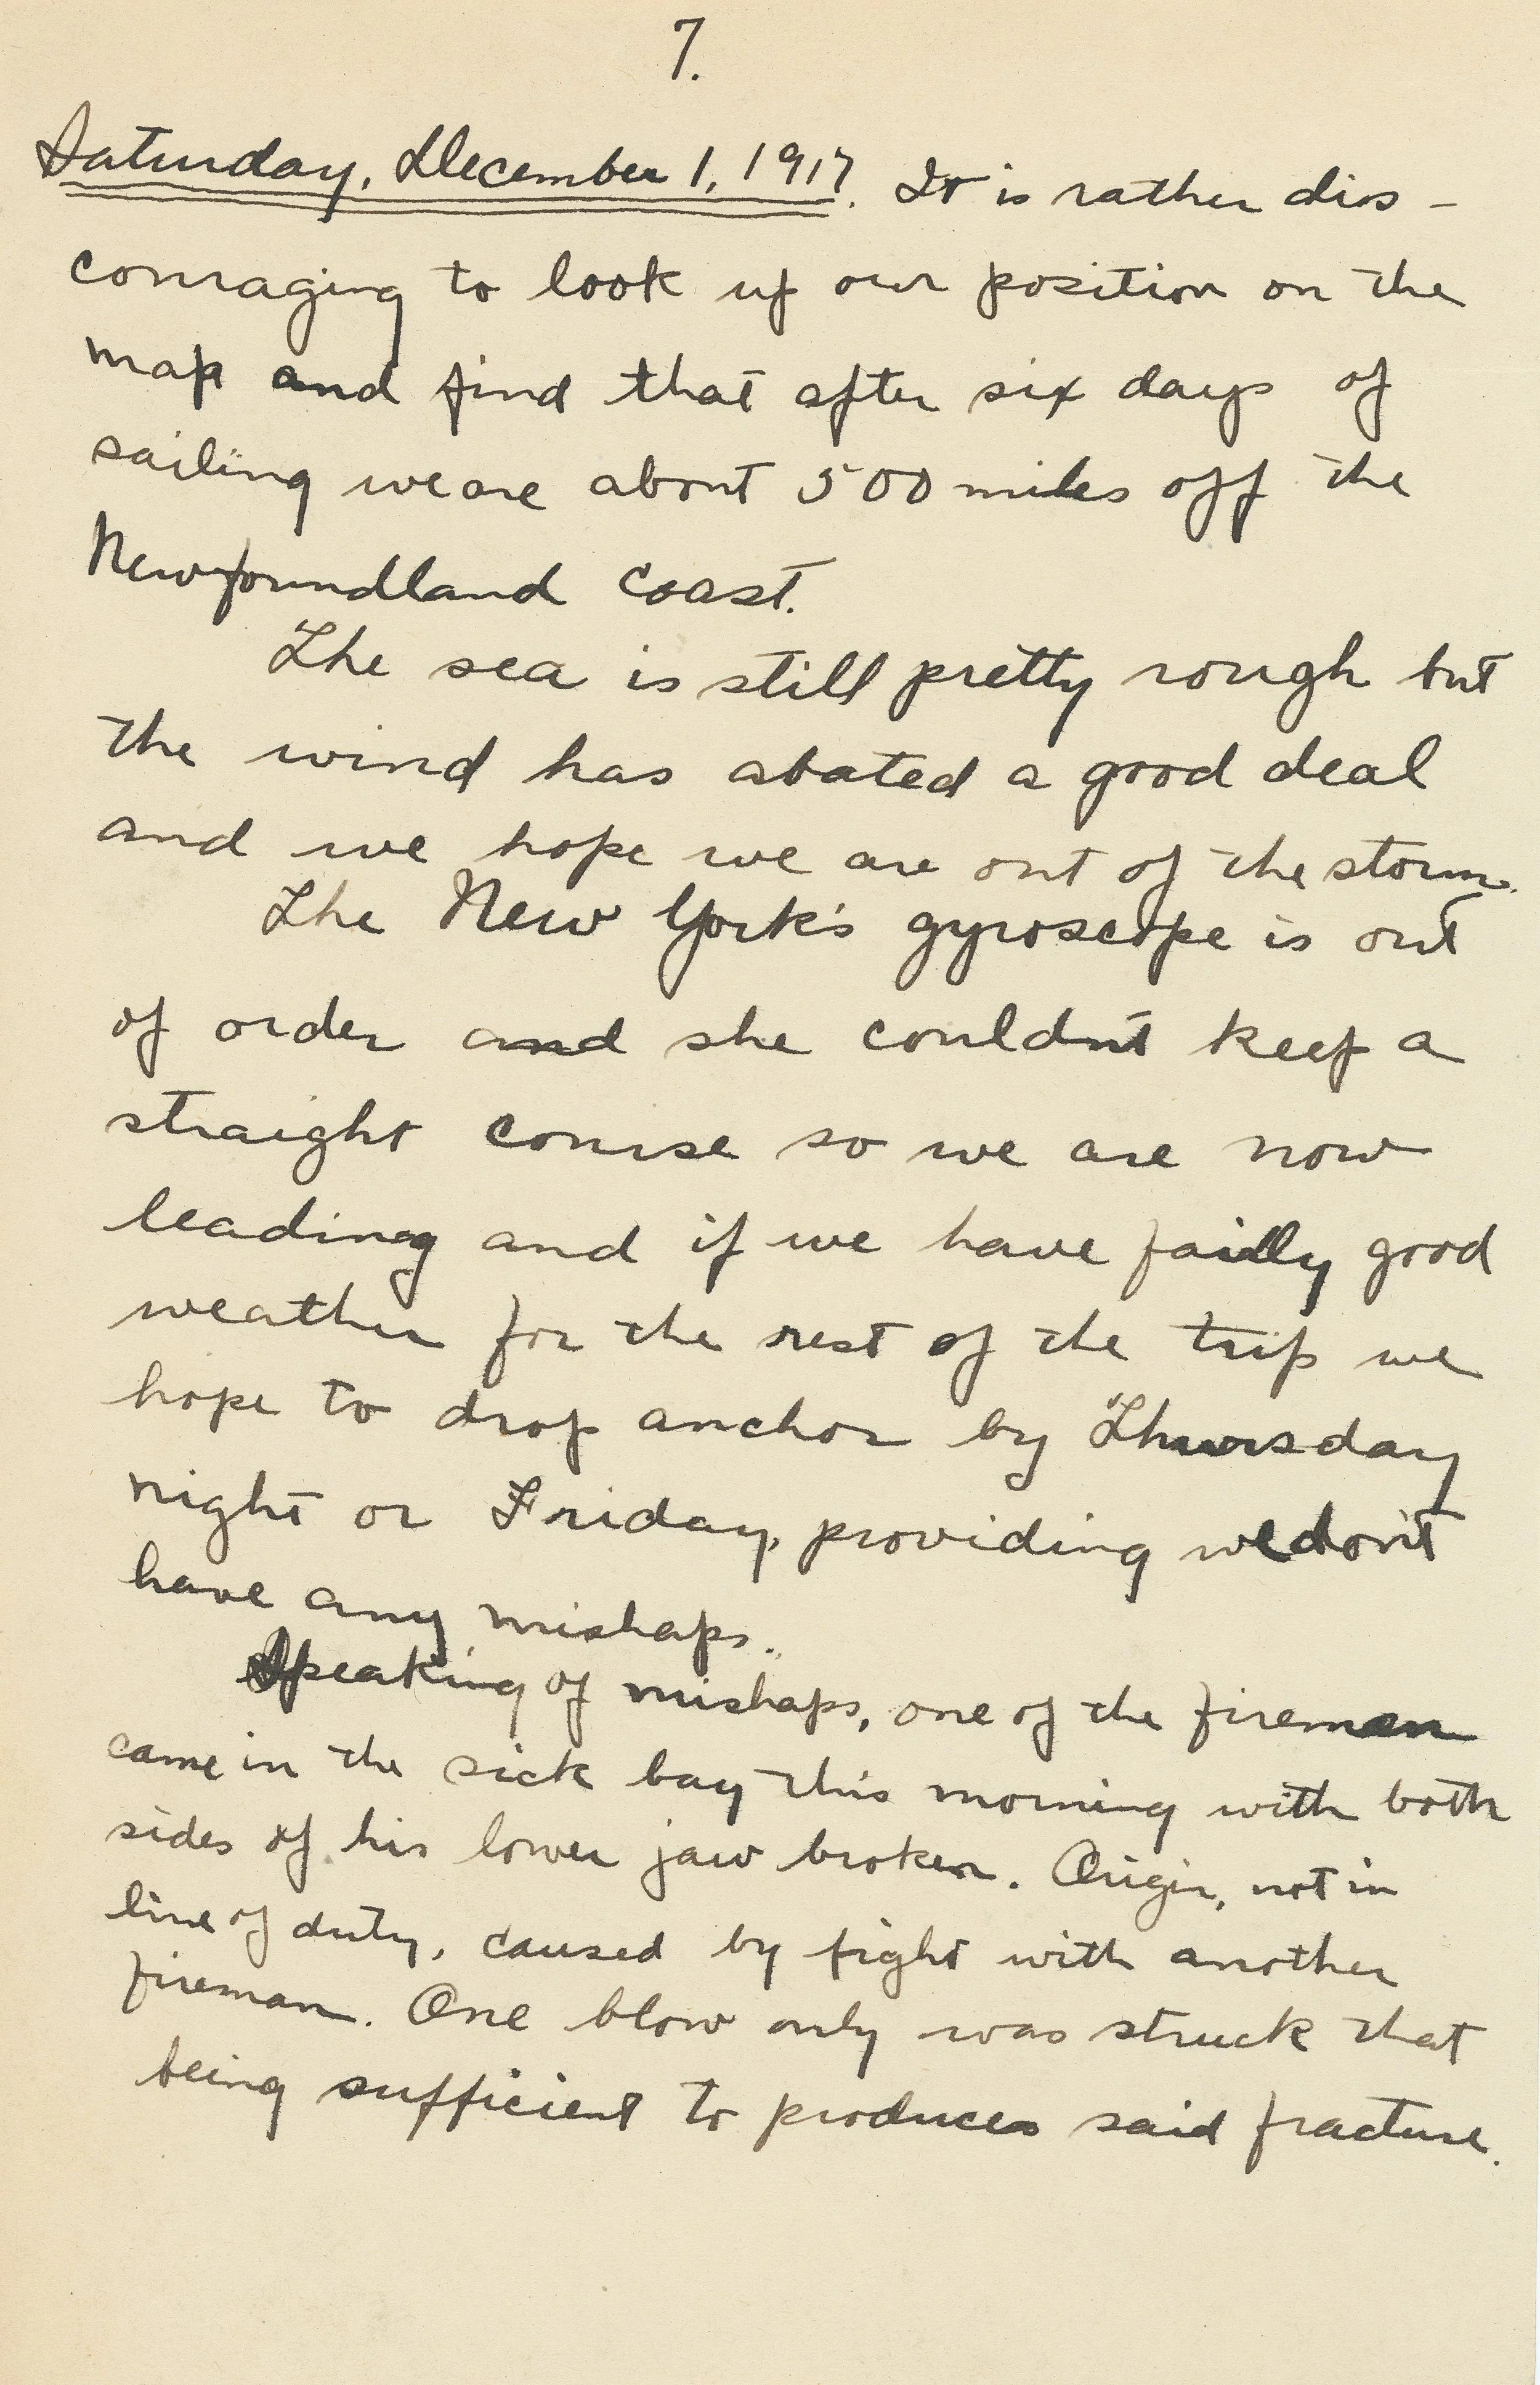 7.
Saturday, December 1, 1917. It is rather dis-
couraging to look up our position on the
map and find that after six days of
sailing we are about 500 miles off the
Newfoundland coast.
The sea is still pretty rough but
the wind has abated a good deal
and we hope we are out of the storm.
The New York's gyroscope is out
of order and she couldn't keep a
straight course so we are now
leading and if we have fairly good
weather for the rest of the trip we
hope to drop anchor by Thursday
night or Friday, providing we don't
have any mishaps.
Speaking of mishaps, one of the firemen
came in the sick bay this morning with both
sides of his lower jaw broken. Origin, not in
line of duty, caused by fight with another
fireman. One blow only was struck that
being sufficient to produces said fracture.